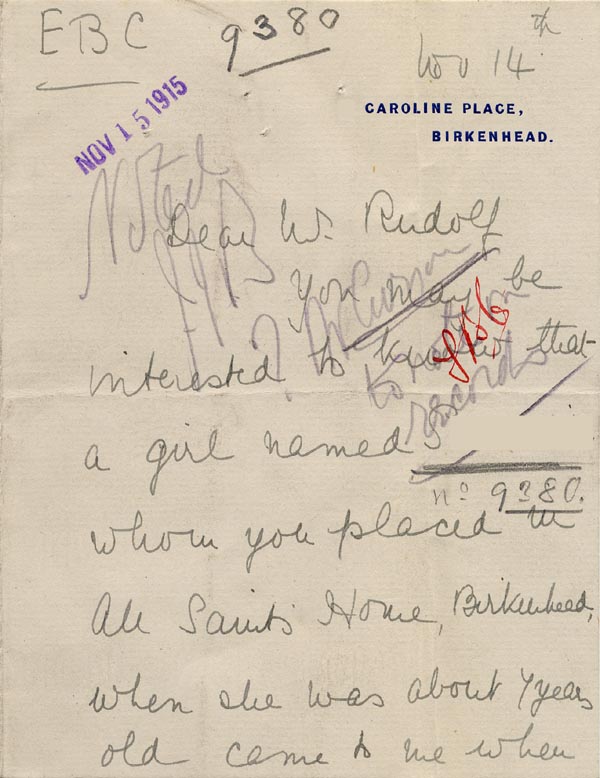 EBC
9380
Nov 14th
NOV 15 1915
CAROLINE PLACE,
BIRKENHEAD.
Noted
Dear Mr. Rudolf
You may be
interested to know that
to note on
records
a girl named
no 9380.
whom you placed in
All Saints' Home, Birkenhead,
when she was about 7 years
old came to me when